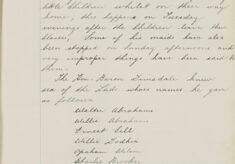 little children whilst on their way
home; this happens on Tuesday
evenings after the children leave the
classes. Some of his maids have also
been stopped on Sunday afternoons and
very improper things have been said to
them.
The Hon. Baron Dimsdale knew
six of the Lads whose names he gave
as follows
Walter Abrahams
Willie Abrahams
Ernest Sell
Willie
Graham
Charles Brooker